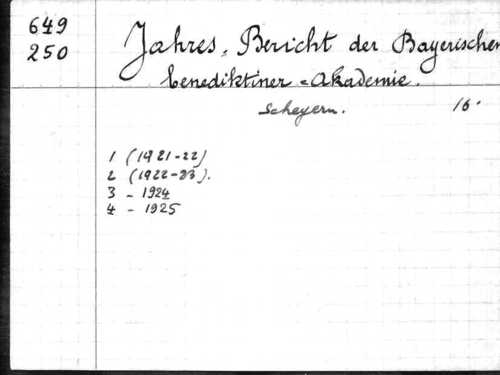 649
250
Jahres-Bericht der Bayerischen
benediktiner-Akademie.
Scheyern. 16.
1 (1921-22)
2 (1922-23).
3 - 1924
4 - 1925